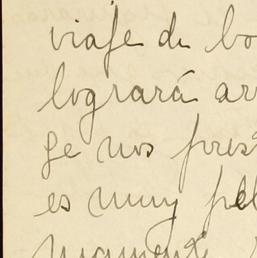 viaje de bo
logrará ar
ge nos pres
es muy pel